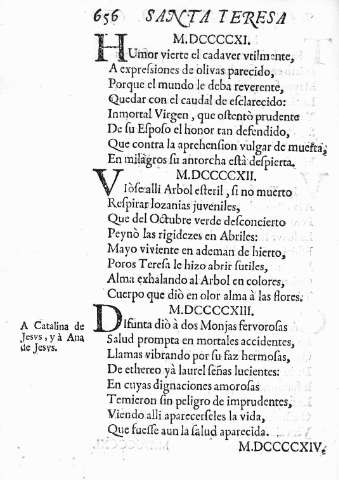 656 SANTA TERESA
M.DCCCCXI.
HUmor vierte el cadaver vtilmente,
A expreſsiones de olivas parecido,
Porque el mundo le deba reverente,
Quedar con el caudal de eſclarecido:
Inmortal Virgen, que oſtentò prudente
De ſu Eſpoſo el honor tan defendido,
Que contra la aprehenſion vulgar de muerta,
En milagros ſu antorcha eſtà deſpierta.
M.DCCCCXII.
VIòſe alli Arbol eſteril, ſi no muerto
Reſpirar lozanias juveniles,
Que del Octubre verde deſconcierto
Peynò las rigidezes en Abriles:
Mayo viviente en ademan de hierto,
Poros Tereſa le hizo abrir ſutiles,
Alma exhalando al Arbol en colores,
Cuerpo que diò en olor alma à las flores.
M.DCCCCXIII.
A Catalina de
Jesvs, y à Ana
de Jesvs.
DIſunta diò à dos Monjas fervoroſas
Salud prompta en mortales accidentes,
Llamas vibrando por ſu faz hermoſas,
De ethereo yà laurel ſeñas lucientes:
En cuyas dignaciones amoroſas
Temieron ſin peligro de imprudentes,
Viendo alli aparecerſeles la vida,
Que fueſſe aun la ſalud aparecida.
M.DCCCCXIV.